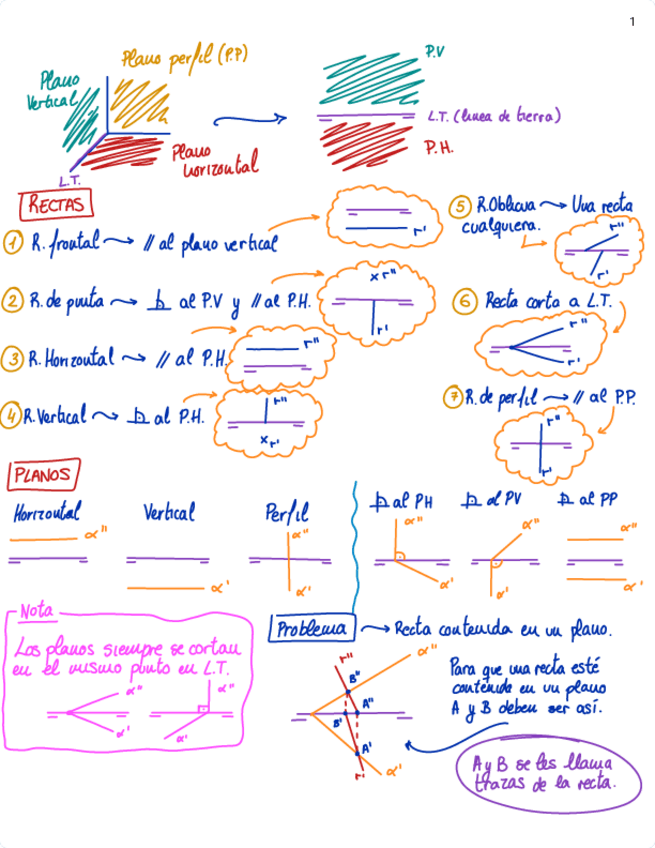 1
Plano perfil (P.P)
Plano
Vertical
Plano
horizontal
L.T.
P.V
L.T. (linea de tierra)
P.H.
RECTAS
1 R. frontal → // al plano vertical
r'
2 R. de punta → ⊥ al P.V y // al P.H.
x r"
r'
3 R. Horizontal → // al P.H.
r"
4 R. Vertical → ⊥ al P.H.
r"
x r'
5 R. Oblicua → Una recta
cualquiera.
r"
r'
6 Recta corta a L.T.
r"
r'
7 R. de perfil → // al P.P.
r"
r'
PLANOS
Horizontal
α"
Vertical
α'
Perfil
α"
α'
⊥ al PH
α"
α'
⊥ al PV
α"
α'
⊥ al PP
α"
α'
Nota
Los planos siempre se cortan
en el mismo punto en L.T.
α"
α'
α"
α'
Problema → Recta contenida en un plano.
r"
α"
B"
A"
B'
A'
r'
α'
Para que una recta esté
contenida en un plano
A y B deben ser así.
A y B se les llama
trazas de la recta.